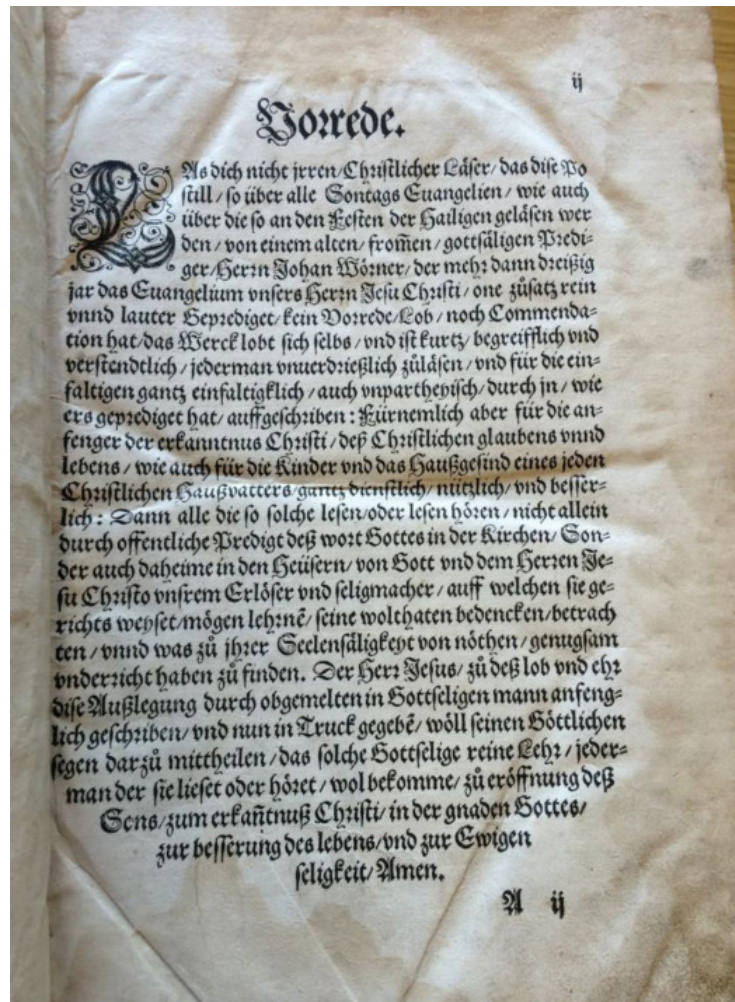 ij
Vorrede.
LAs dich nicht jrren/Christlicher Läser/das dise Po
still/so über alle Sontags Euangelien/wie auch
über die so an den Festen der Hailigen geläsen wer
den/von einem alten/from̃en/gottsäligen Predi-
ger/Herrn Johan Wörner/der mehr dann dreißig
jar das Euangelium vnsers Herrn Jesu Christi/one zůsatz rein
vnnd lauter Geprediget/kein Vorrede/Lob/noch Commenda-
tion hat/das Werck lobt sich selbs/vnd ist kurtz/begreifflich vnd
verstendtlich/jederman vnuerdrießlich zůläsen/vnd für die ein-
faltigen gantz einfaltigklich/auch vnpartheyisch/durch jn/wie
ers geprediget hat/auffgeschriben: Fürnemlich aber für die an-
fenger der erkanntnus Christi/deß Christlichen glaubens vnnd
lebens/wie auch für die Kinder vnd das Haußgesind eines jeden
Christlichen Haußvatters/gantz dienstlich/nützlich/vnd besser-
lich: Dann alle die so solche lesen/oder lesen hören/nicht allein
durch offentliche Predigt deß wort Gottes in der Kirchen/Son-
der auch daheime in den Heüsern/von Gott vnd dem Herren Je-
su Christo vnsrem Erlöser vnd seligmacher/auff welchen sie ge-
richts weyset/mögen lehrnẽ/seine wolthaten bedencken/betrach
ten/vnnd was zů jhrer Seelensäligkeyt von nöthen/genugsam
vnderricht haben zů finden. Der Herr Jesus/zů deß lob vnd ehr
dise Außlegung durch obgemelten in Gottseligen mann anfeng-
lich geschriben/vnd nun in Truck gegebẽ/wöll seinen Göttlichen
segen darzů mittheilen/das solche Gottselige reine Lehr/jeder-
man der sie lieset oder höret/wol bekomme/zů eröffnung deß
Sens/zum erkañtnuß Christi/in der gnaden Gottes/
zur besserung des lebens/vnd zur Ewigen
seligkeit/Amen.
A ij